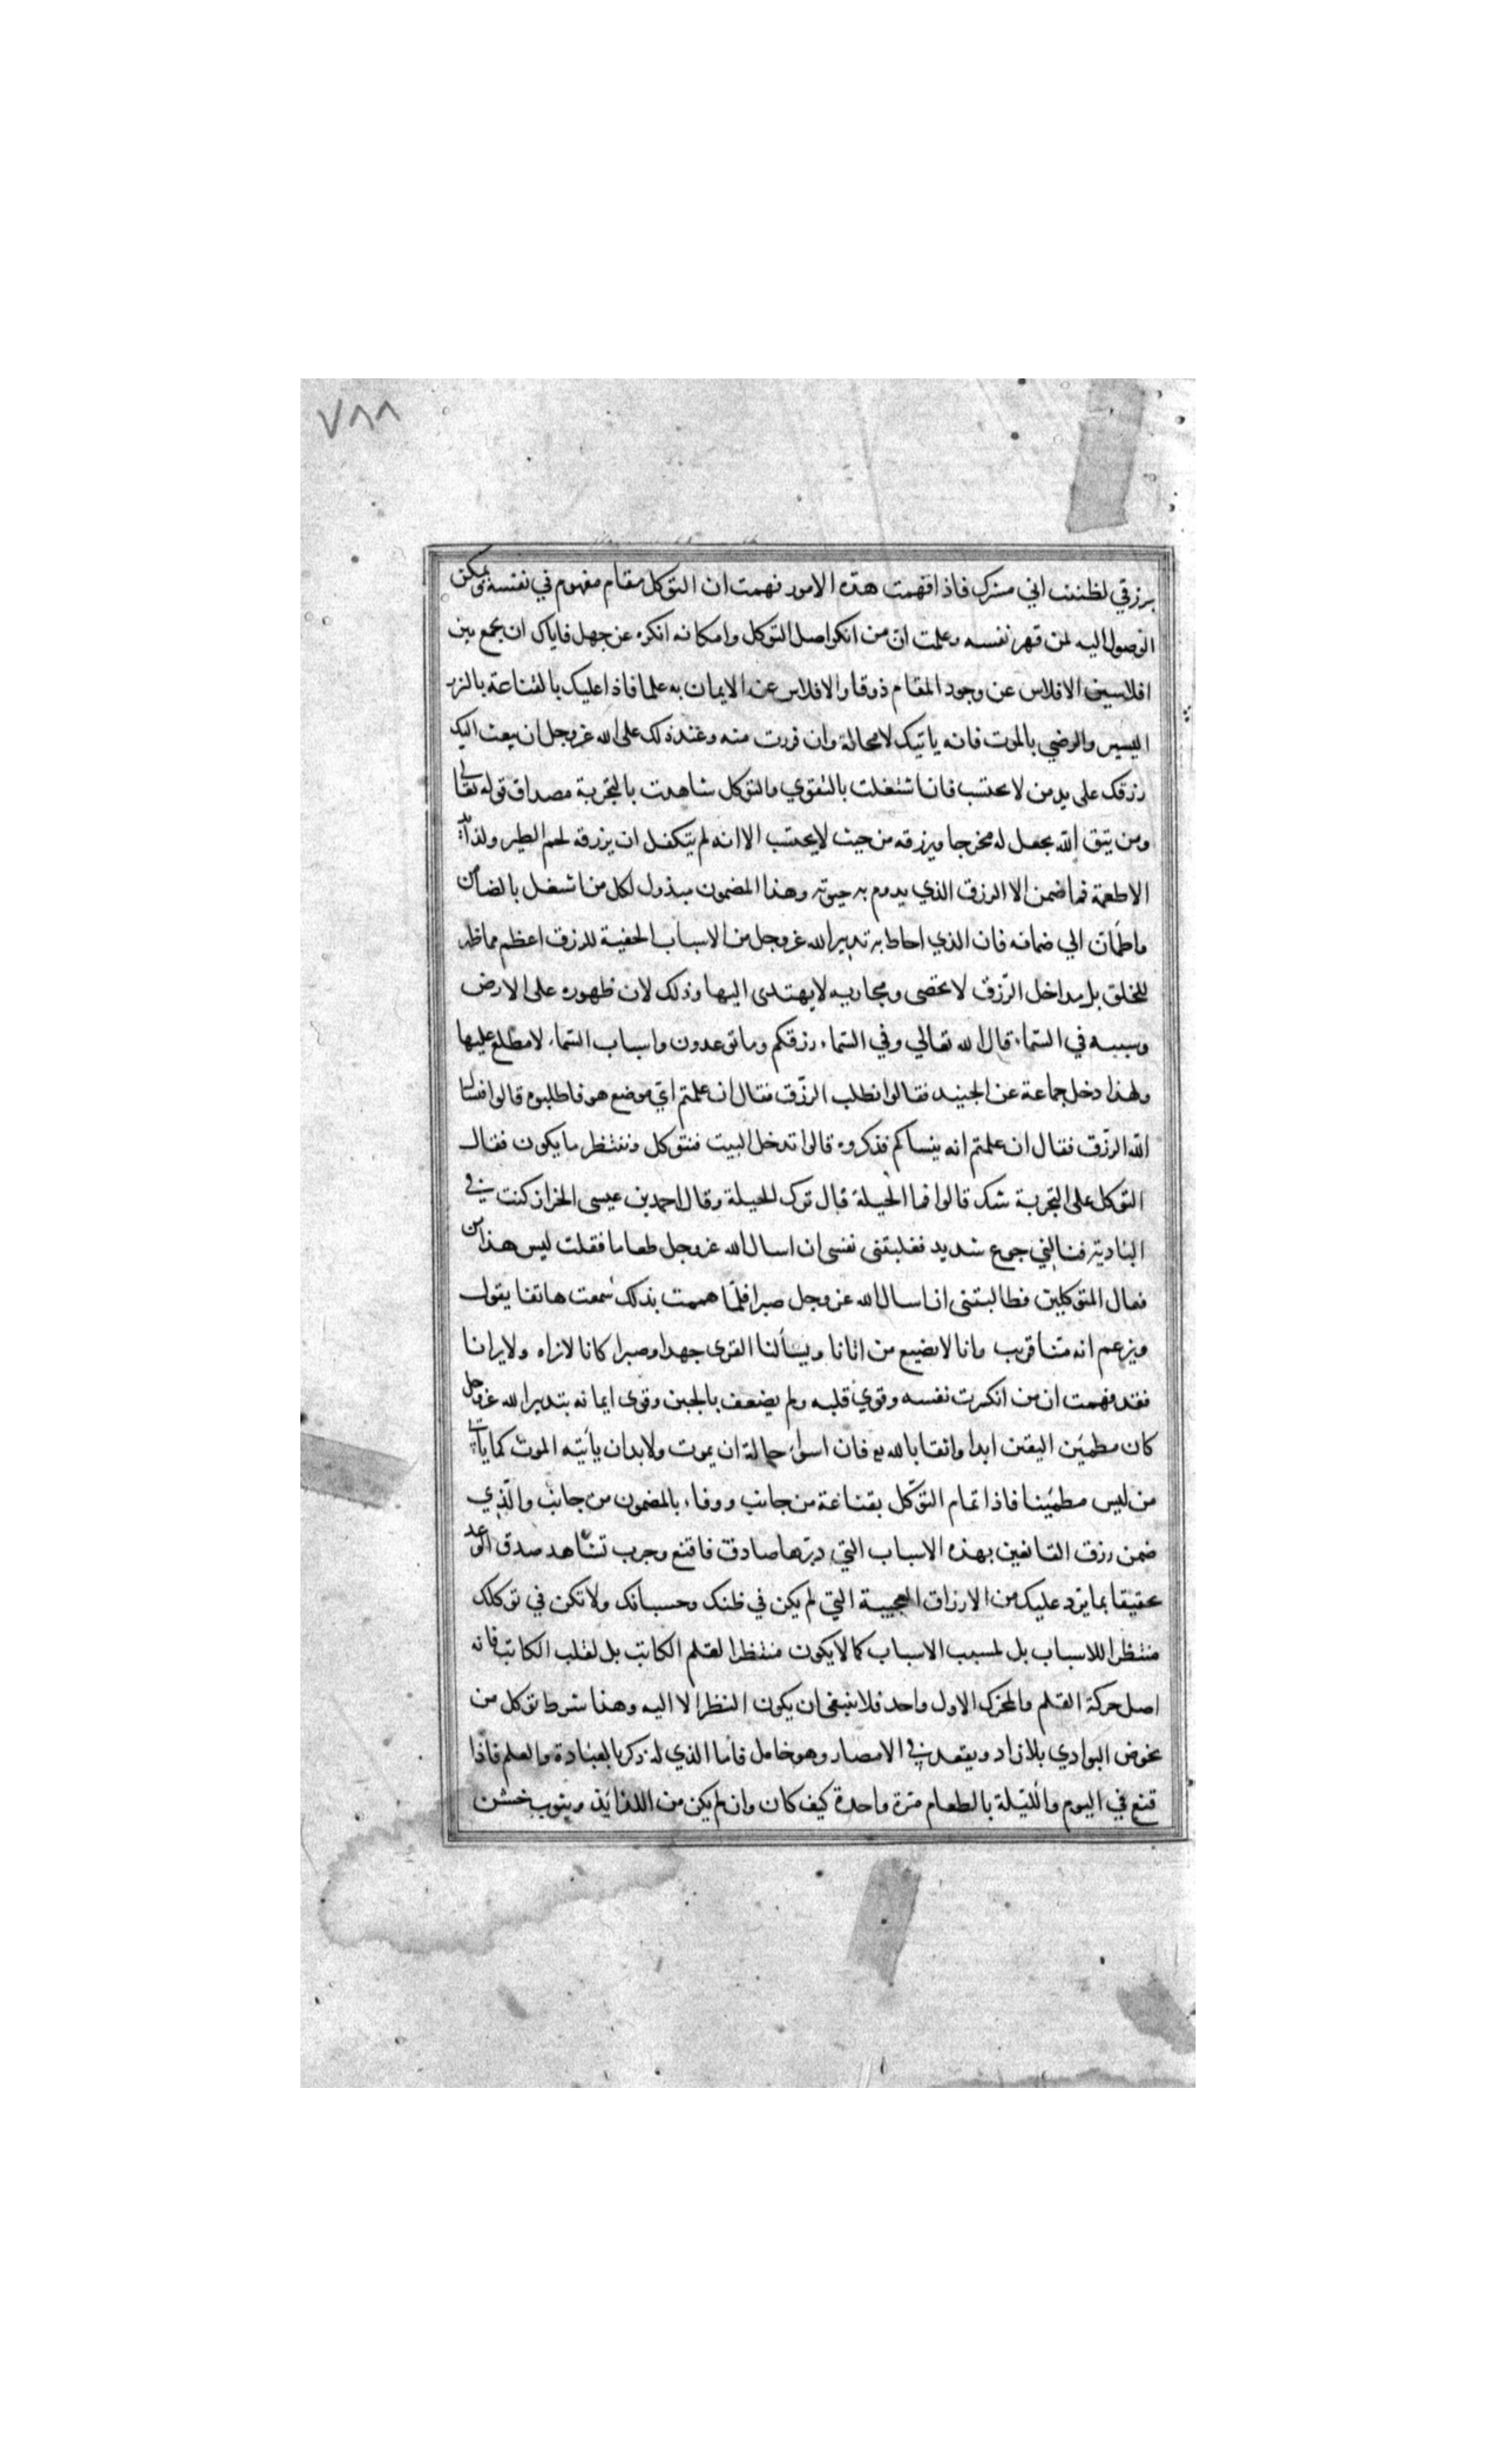 ٧٨٨
برزقي لظننت اني مشرك فاذا فهمت هذه الامور فهمت ان التوكل مقام مفهوم في نفسه يمكن
الوصول اليه لمن قهر نفسه وعلمت ان من انكر اصل التوكل وامكانه انكره عن جهل فاياك ان يجمع بين
افلاسين الافلاس عن وجود المقام ذوقا والافلاس عن الايمان به علما فاذا عليك بالقناعة بالنزر
اليسير والرضي بالموت فانه ياتيك لا محالة وان فررت منه وعند ذلك على الله عز وجل ان يبعث اليك
رزقك على يد من لا يحتسب فان اشتغلت بالتقوي والتوكل شاهدت بالتجربة مصداق قوله تعالى
ومن يتق الله يجعل له مخرجا ويرزقه من حيث لا يحتسب الا انه لم يتكفل ان يرزقه لحم الطير ولذايذ
الاطعمة فما ضمن الا الرزق الذي يدوم به حيوته وهذا المضمون مبذول لكل من اشتغل بالضامن
واطمأن الي ضمانه فان الذي احاط به تدبير الله عز وجل من الاسباب الخفية للرزق اعظم مما ظهر
للخلق بل مداخل الرزق لا تحصى ومجاريه لا يهتدى اليها وذلك لان ظهوره على الارض
وسببه في السماء قال الله تعالي وفي السماء رزقكم وما توعدون واسباب السماء لا مطلع عليها
ولهذا دخل جماعة عن الجنيد فقالوا نطلب الرزق فقال ان علمتم اي موضع هو فاطلبوه قالوا فنسال
الله الرزق فقال ان علمتم انه ينساكم فذكروه قالوا ندخل البيت فنتوكل وننتظر ما يكون فقال
التوكل على التجربة شك قالوا فما الحيلة قال ترك الحيلة وقال احمد بن عيسى الخراز كنت في
البادية فنالني جوع شديد فغلبتني نفسي ان اسال الله عز وجل طعاما فقلت ليس هذا من
فعال المتوكلين فطالبتني ان اسال الله عز وجل صبرا فلما هممت بذلك سمعت هاتفا يقول
ويزعم انه منا قريب وانا لا نضيع من اتانا ويسألنا القرى جهدا وصبرا كانا لا نراه ولا يرانا
فقد فهمت ان من انكسرت نفسه وقوي قلبه ولم يضعف بالجبن وقوى ايمانه بتدبير الله عز وجل
كان مطمئن اليقين ابدا واثقا بالله فان اسوأ حالة ان يموت ولا بد ان يأتيه الموت كما ياتي
من ليس مطمئنا فاذا تمام التوكل بقناعة من جانب ووفاء بالمضمون من جانب والذي
ضمن رزق القانعين بهذه الاسباب التي دبرها صادق فاقنع وجرب تشاهد صدق الوعد
تحقيقا بما يرد عليك من الارزاق العجيبة التي لم يكن في ظنك وحسبانك ولا تكن في توكلك
منتظرا للاسباب بل لمسبب الاسباب كما لا يكون منتظرا لقلم الكاتب بل لقلب الكاتب فانه
اصل حركة القلم والمحرك الاول واحد فلا ينبغي ان يكون النظر الا اليه وهذا شرط توكل من
يخوض البوادي بلا زاد ويقعد في الامصار وهو خامل فاما الذي له ذكر بالعبادة والعلم فاذا
قنع في اليوم والليلة بالطعام مرة واحدة كيف كان وان لم يكن من اللذايذ وبثوب خشن